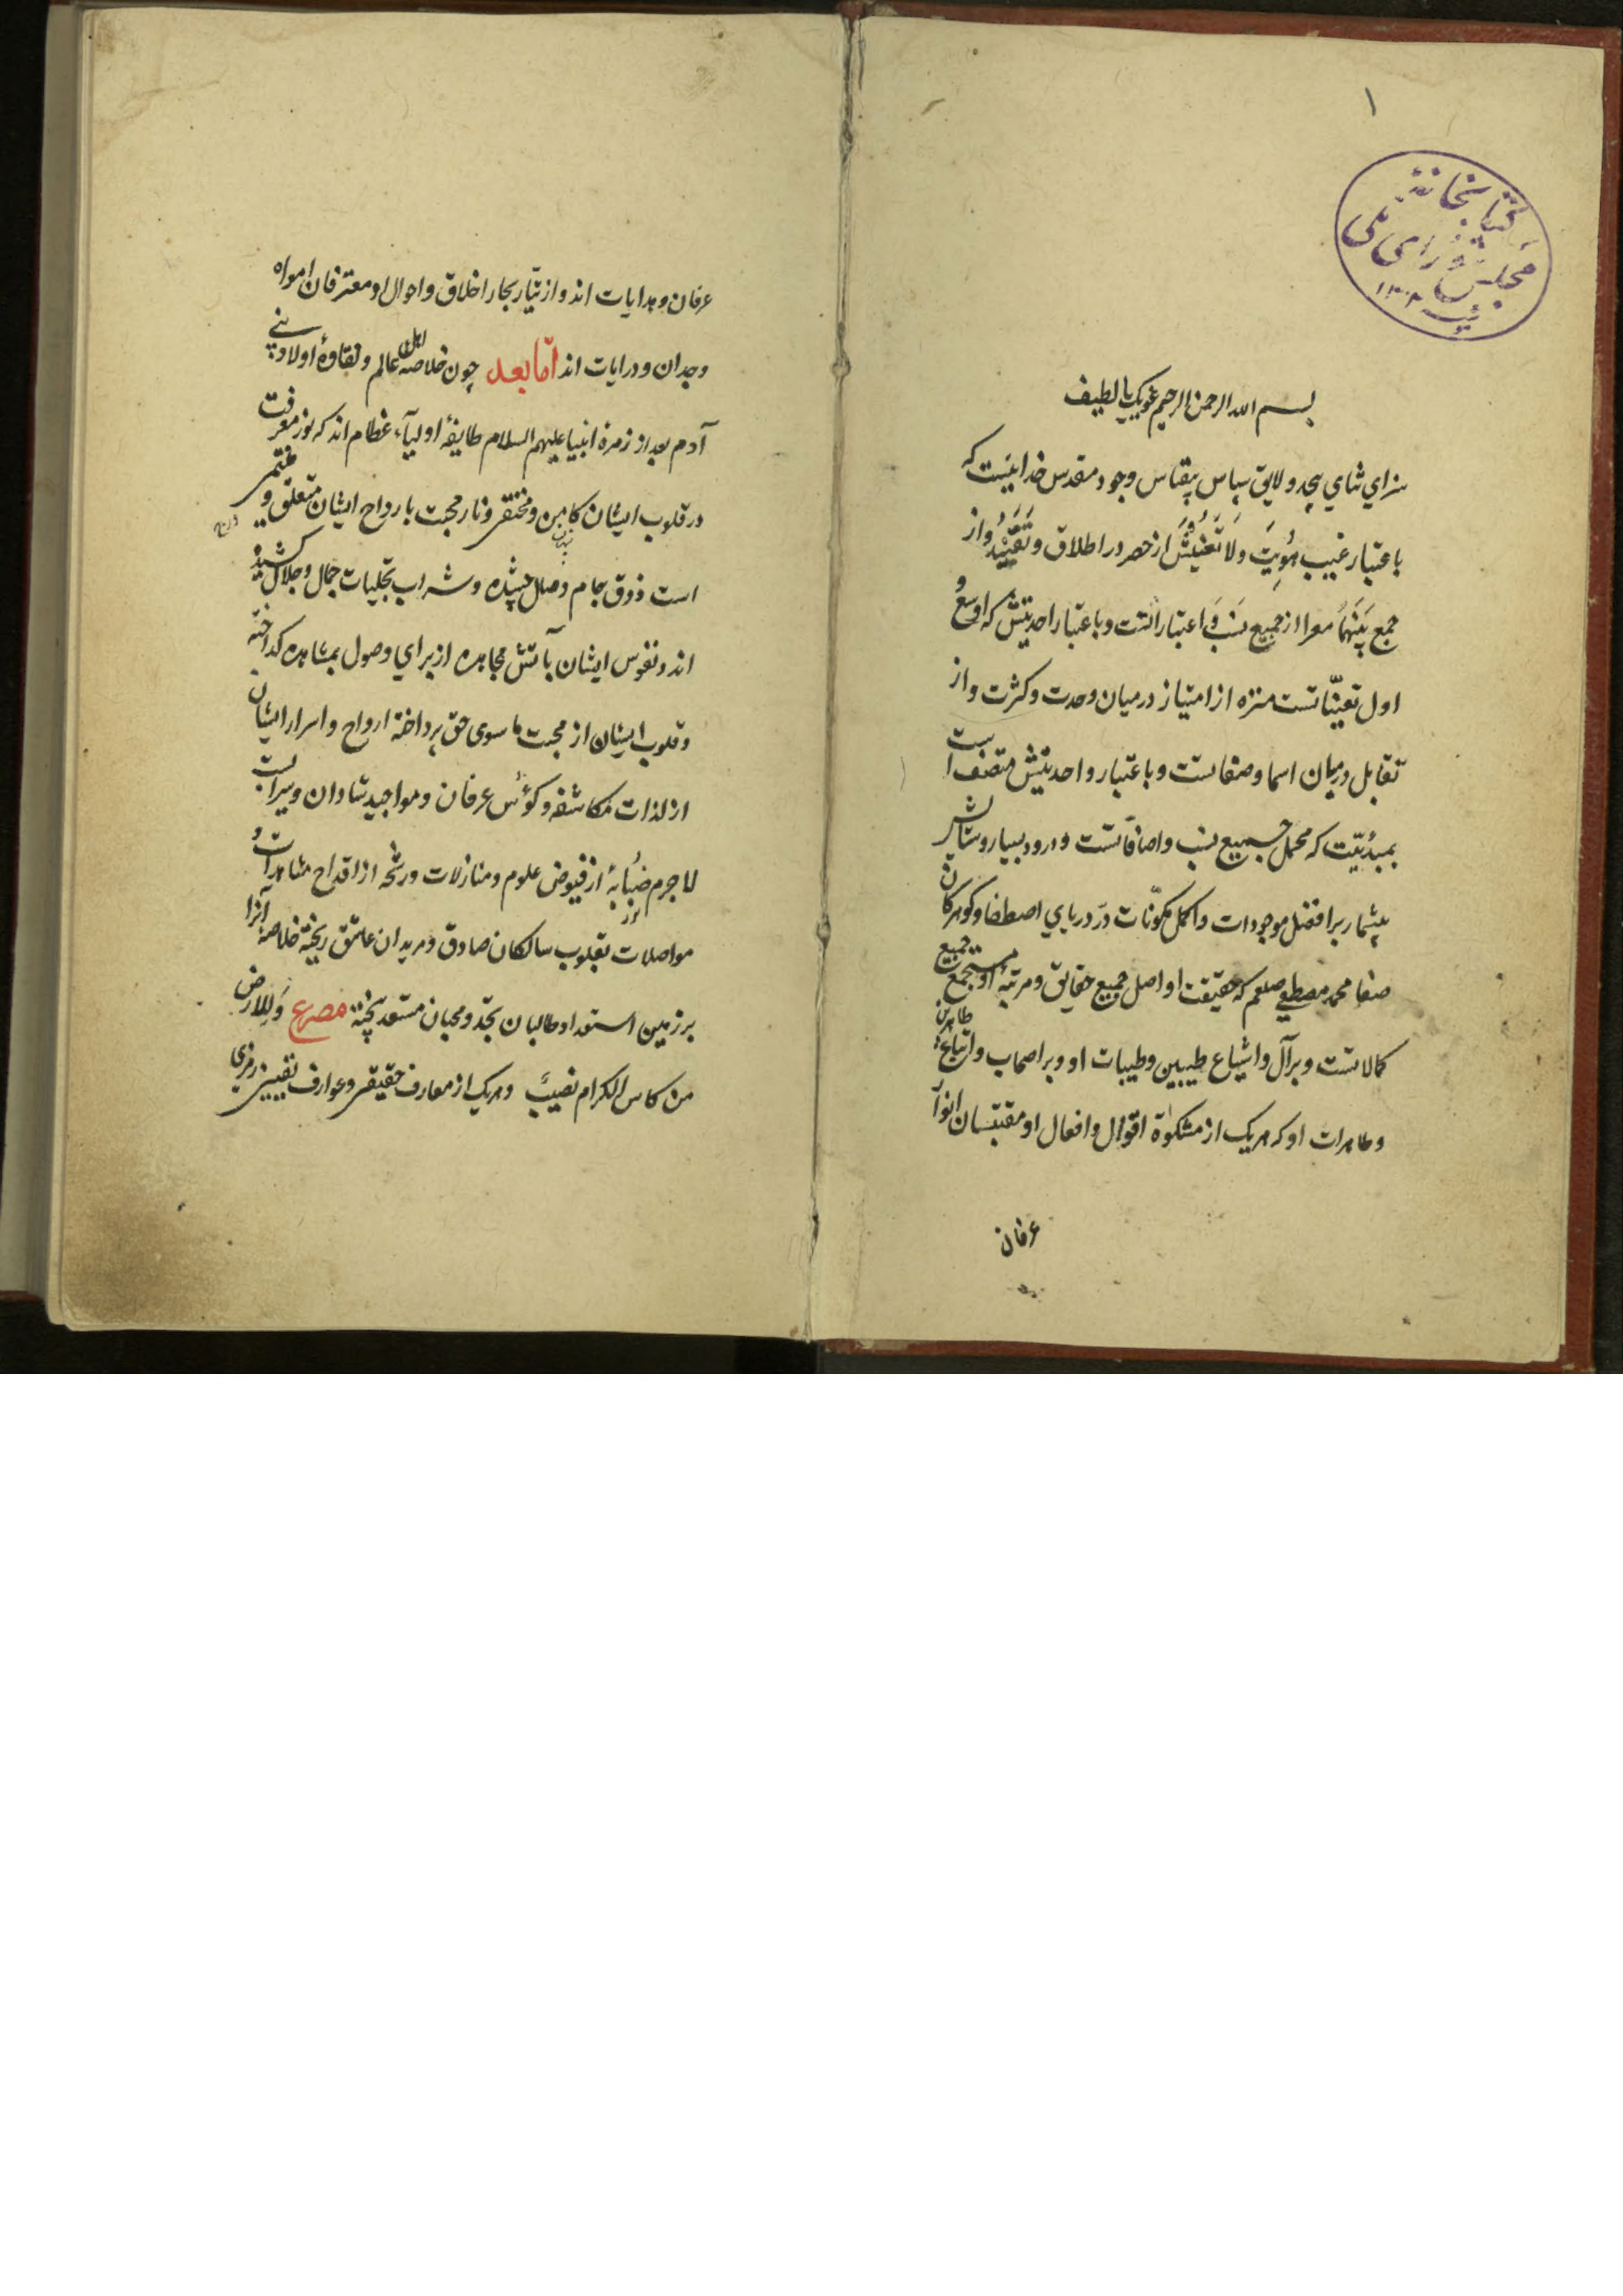 ۱
کتابخانهٔ
مجلس شورای ملی
بسم الله الرحمن الرحیم عونک یا لطیف
سزاي ثناي بیحد و لایق سپاس بیقیاس وجود مقدس خداییست که
باعتبار غیب هویت ولا تعینش از حصر در اطلاق و تقیید و از
جمع بینهما معرا از جمیع نسب و اعتباراتست و باعتبار احدیتش که اوسع و
اول تعیناتست منزه از امتیاز در میان وحدت و کثرت و از
تقابل درمیان اسما و صفاتست و باعتبار واحدیتش متصفست
بمبدئیت که مجمل جمیع نسب و اضافاتست و درود بسیار و ستایش
بیشمار بر افضل موجودات و اکمل مکونات در دریاي اصطفا و کوهر کان
صفا محمد مصطفی صلعم که حقیقت او اصل جمیع حقایق و مرتبهٔ او مستجمع جمیع
کمالاتست و بر آل و اشیاع طیبین و طیبات او و بر اصحاب و اتباع طاهرین
و طاهرات او که هریک از مشکوة اقوال و افعال او مقتبسان انوار
عرفان
عرفان و هدایات اند و از تیار بحار اخلاق و احوال او معترفان امواه
وجدان و درایات اند اما بعد چون خلاصه اهل عالم و نقاوهٔ اولاد بنی
آدم بعد از زمرهٔ انبیا علیهم السلام طایفهٔ اولیآء عظام اند که نور معرفت
در قلوب ایشان کامن و مختفی و نار محبت بارواح ایشان متعلق و
است ذوق جام وصل چشیده و شراب تجلیات جمال و جلال کشیده
اند و نفوس ایشان بآتش مجاهده از براي وصول بمشاهده کداخته
و قلوب ایشان از محبت ما سوی حق پرداخته ارواح و اسرار ایشان
از لذات مکاشفه و کوٴس عرفان و مواجید شادان و سیرابست
لاجرم صبابهٔ از فیوض علوم و منازلات و رشحه از اقداح مشاهدات و
مواصلات بقلوب سالکان صادق و مریدان عاشق ریخته خلاصهٔ آنرا
بر زمین استعداد طالبان بجد و محبان مستعد بیخته مصرع وللارض
من کاس الکرام نصیب و هریک از معارف حقیقی و عوارف نفیسی رمزی